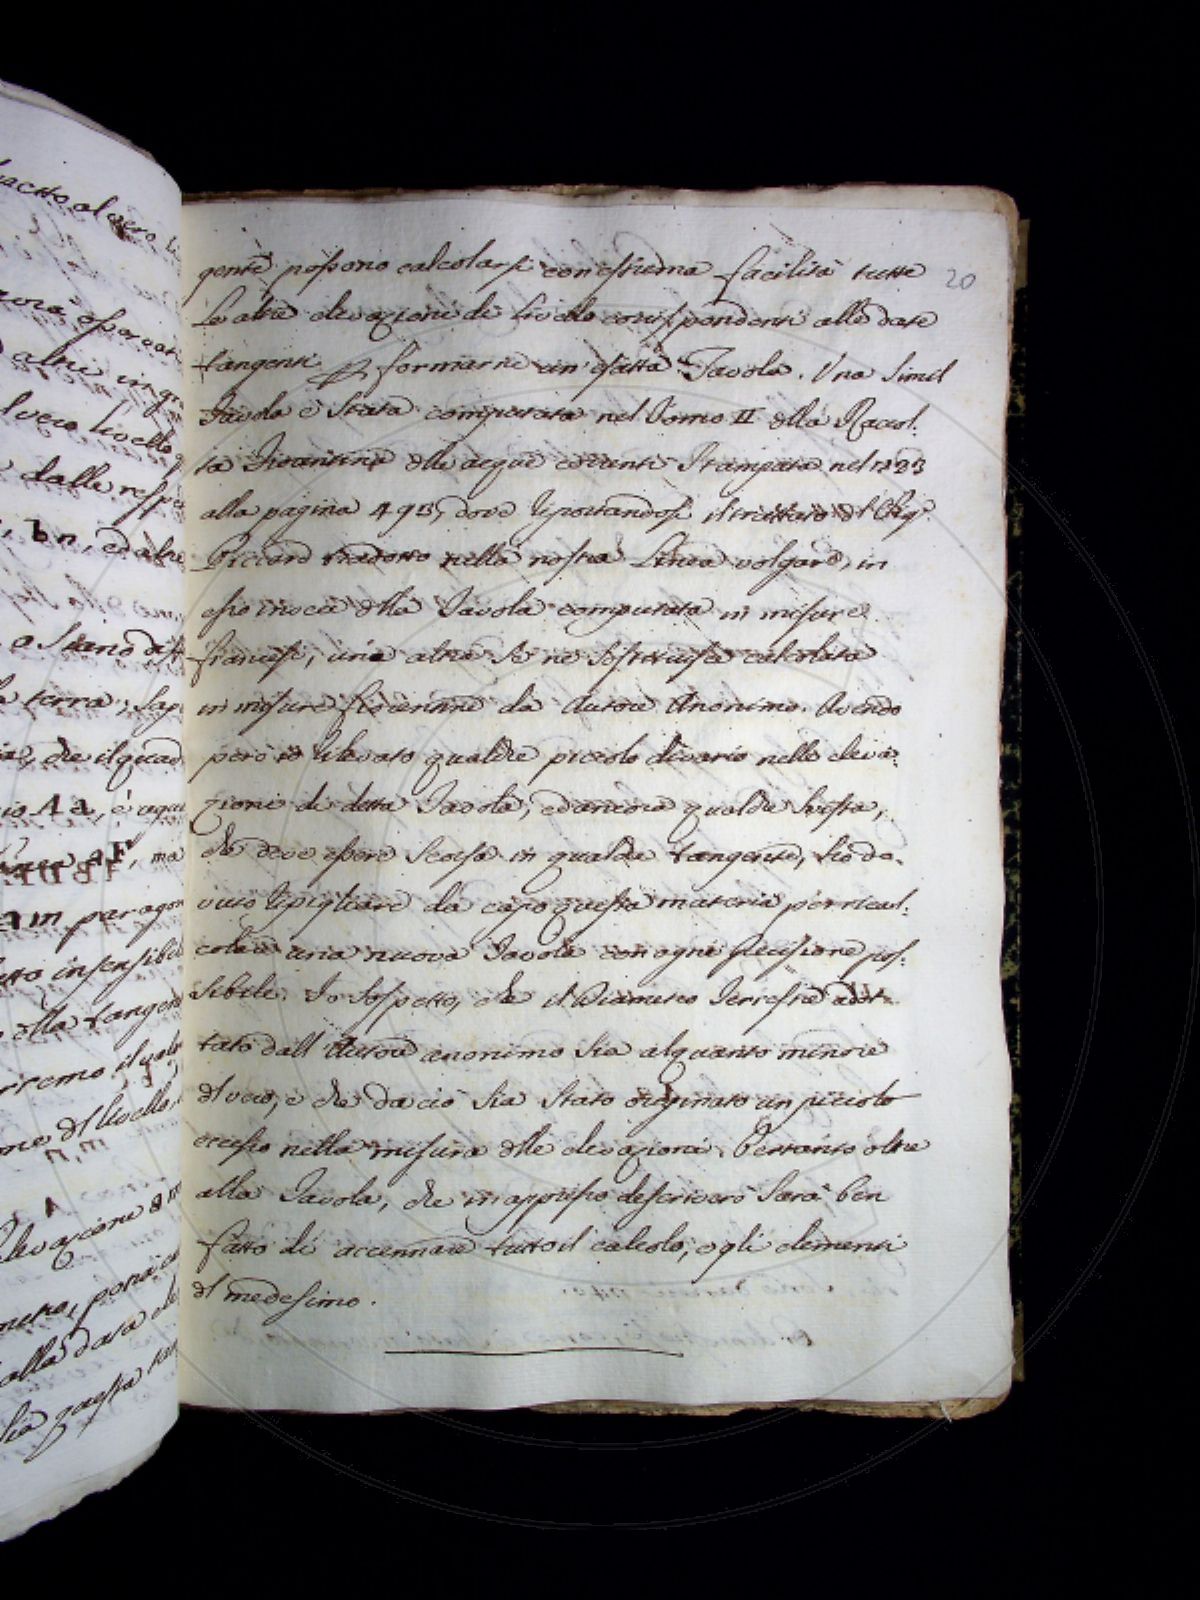 20
gente possono calcolarsi con estrema facilità tutte
le altre elevazioni di livello corrispondenti alle date
tangenti, e formarne un' esatta Tavola. Una simil
Tavola è stata computata nel Tomo II della Raccol-
ta Fiorentina delle acque correnti stampata nel 1723
alla pagina 493, dove riportandosi il trattato del
Piccard tradotto nella nostra Linea volgare, in
esso invece della Tavola computata in misure
francesi, una altra se ne sostituisce calcolata
in misure fiorentine da Autore Anonimo. Avendo
però io rilevato qualche piccolo divario nelle eleva-
zioni di detta Tavola, ed ancora qualche svista,
che deve essere scorsa in qualche tangente, ho do-
vuto ripigliare da capo questa materia per rical-
colare una nuova Tavola con ogni precisione pos-
sibile. Io sospetto, che il Diametro Terrestre adot-
tato dall' Autore anonimo sia alquanto minore
del vero, e che da ciò sia stato originato un piccolo
eccesso nella misura delle elevazioni. Pertanto oltre
alla Tavola, che in appresso descriverò sarà ben
fatto di accennare tutto il calcolo, e gli elementi
del medesimo.